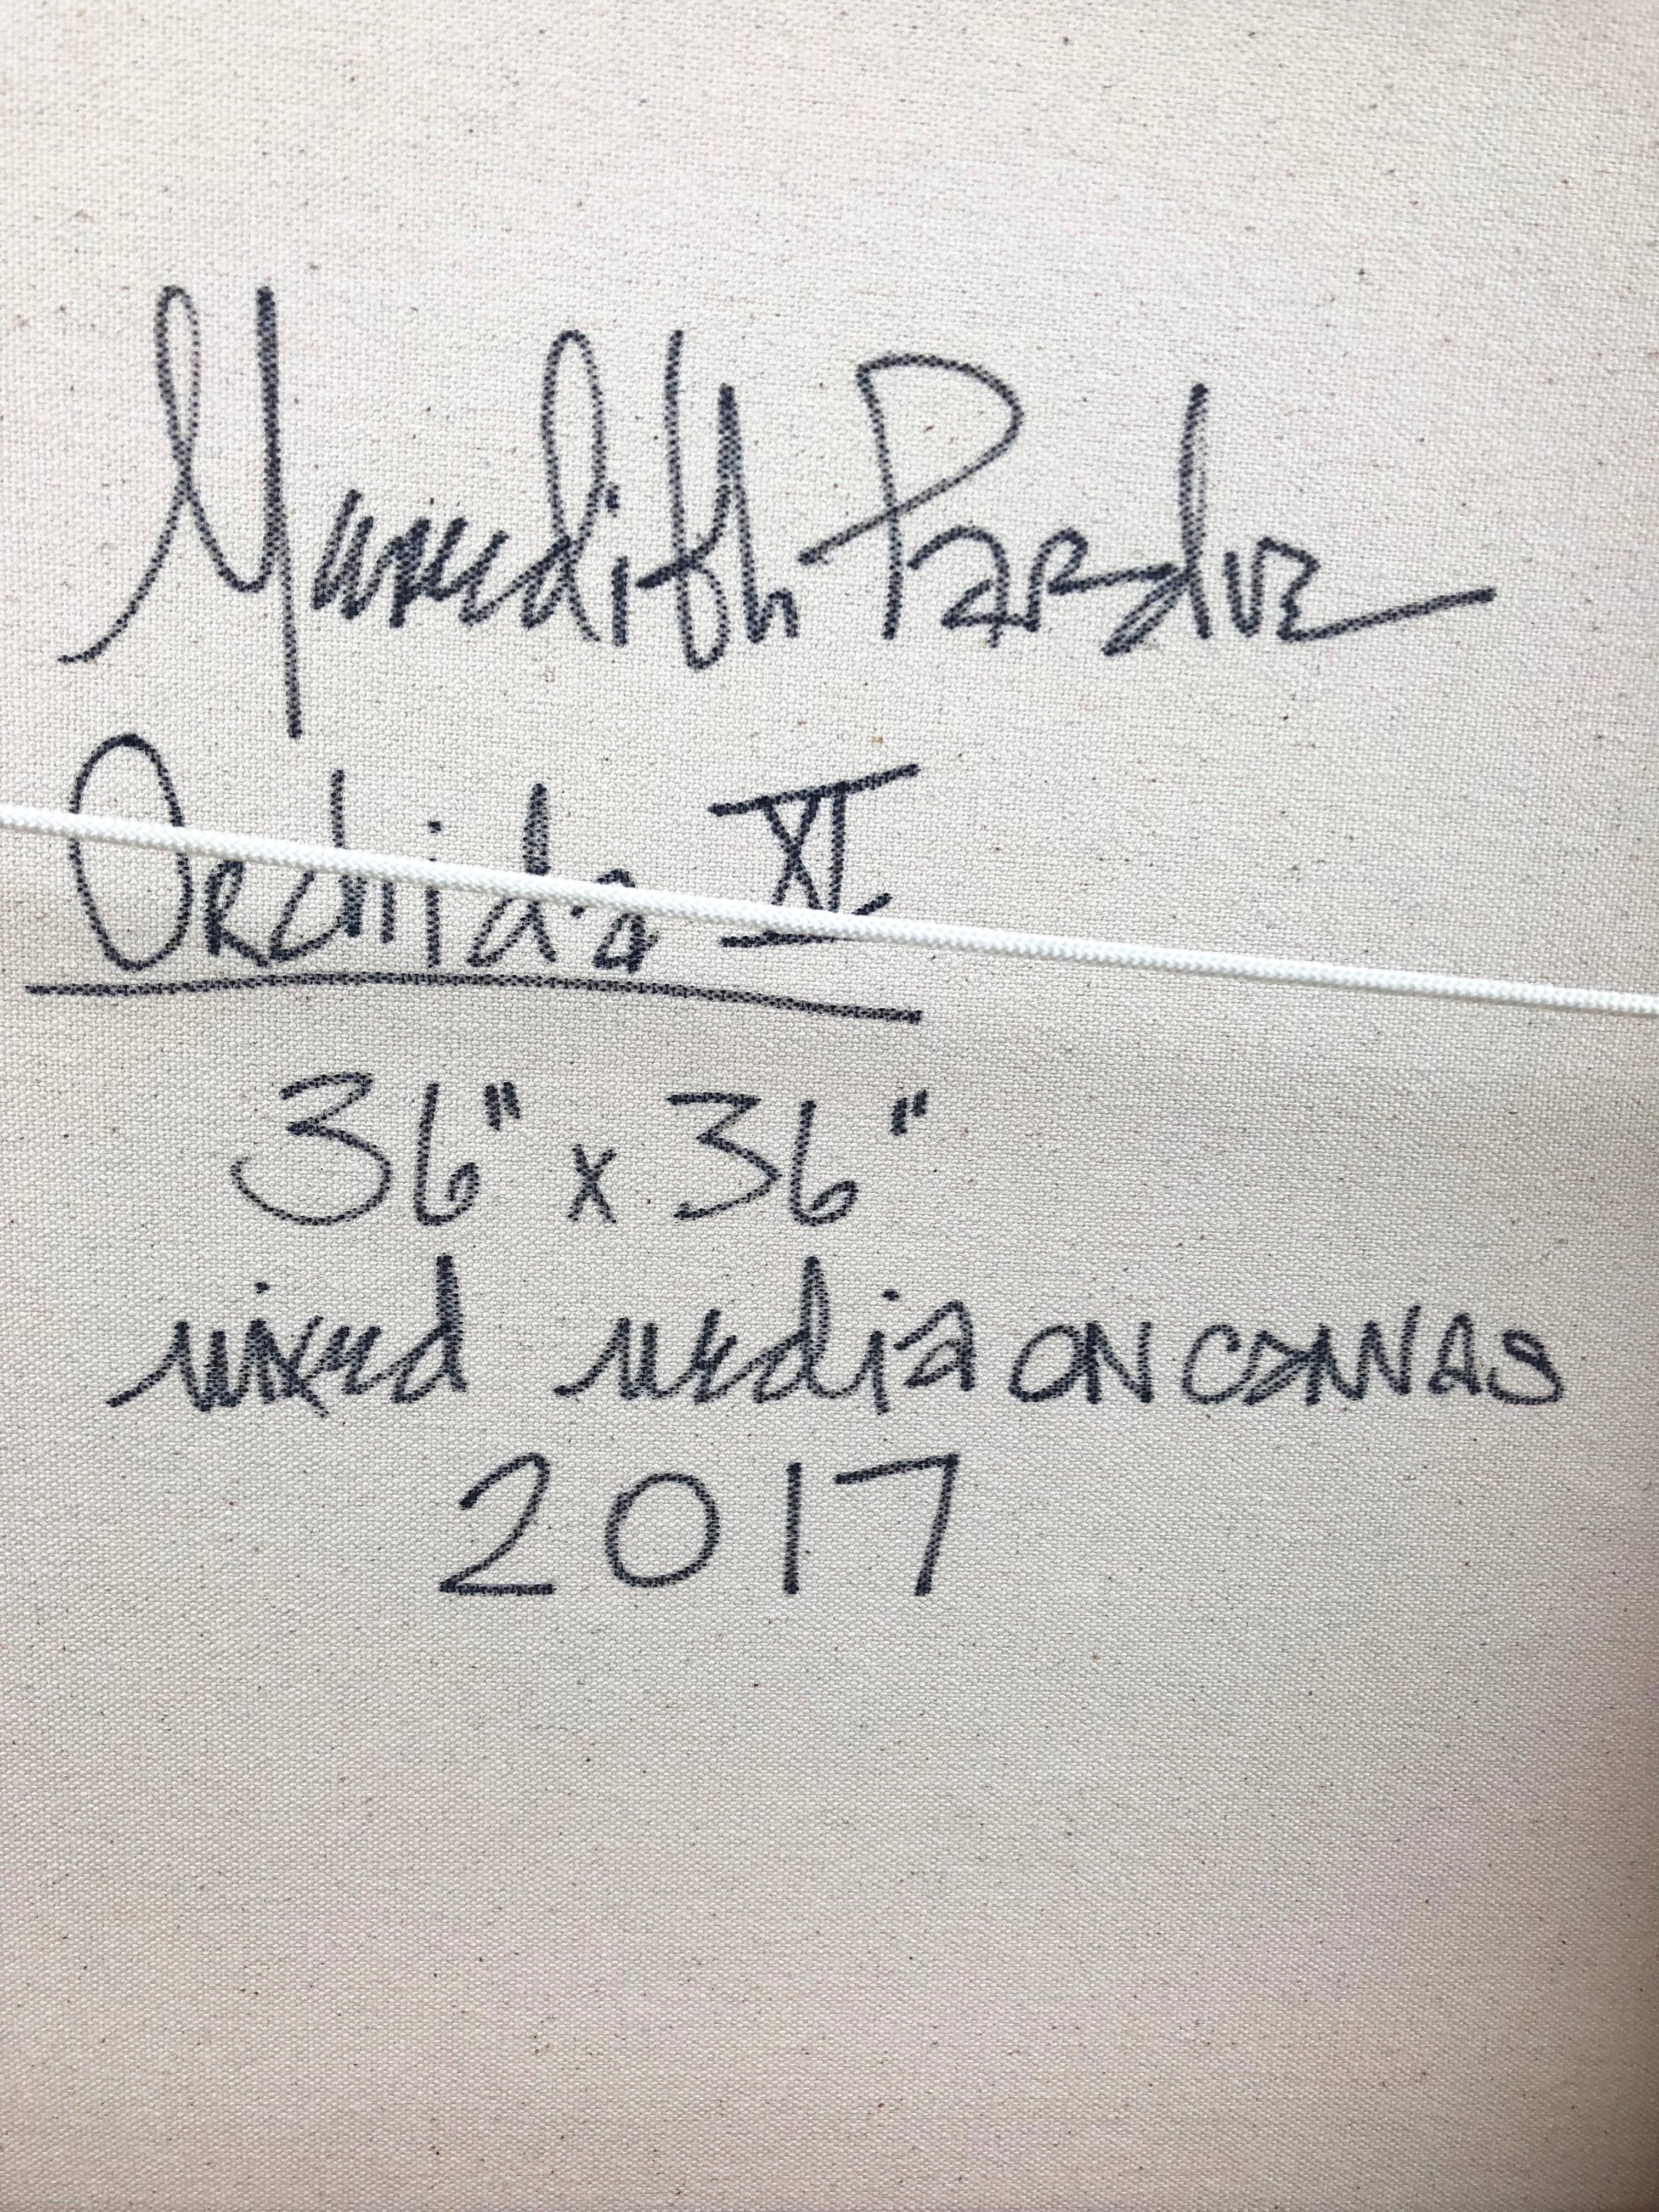 Meredith Pardue
Orchida XI
36" x 36"
mixed media ON CANVAS
2017